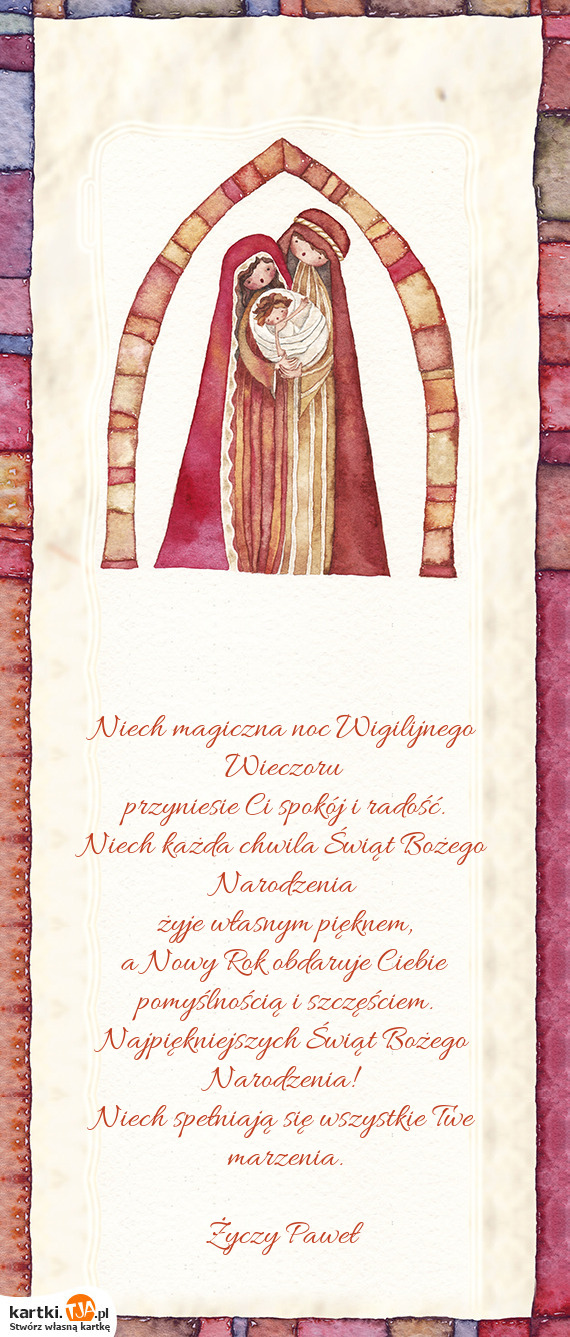 Niech magiczna noc Wigilijnego
Wieczoru
przyniesie Ci spokój i radość.
Niech każda chwila Świąt Bożego
Narodzenia
żyje własnym pięknem,
a Nowy Rok obdaruje Ciebie
pomyślnością i szczęściem.
Najpiękniejszych Świąt Bożego
Narodzenia!
Niech spełniają się wszystkie Twe
marzenia.
Życzy Paweł
kartki.TJA.pl
Stwórz własną kartkę